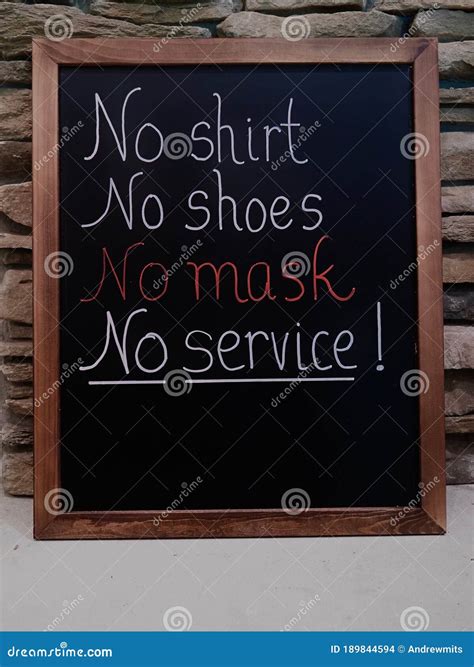 No shirt
No shoes
No mask
No service!
dreamstime.com
ID 189844594 © Andrewmits